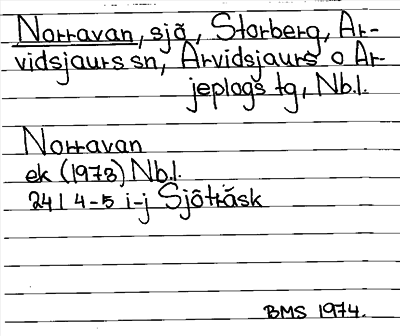 Norravan, sjö, Storberg, Ar-
vidsjaurs sn, Arvidsjaurs o Ar-
jeplogs tg, Nb.l.
Norravan
ek (1973) Nb.l.
24I 4-5 i-j Sjöträsk
BMS 1974.